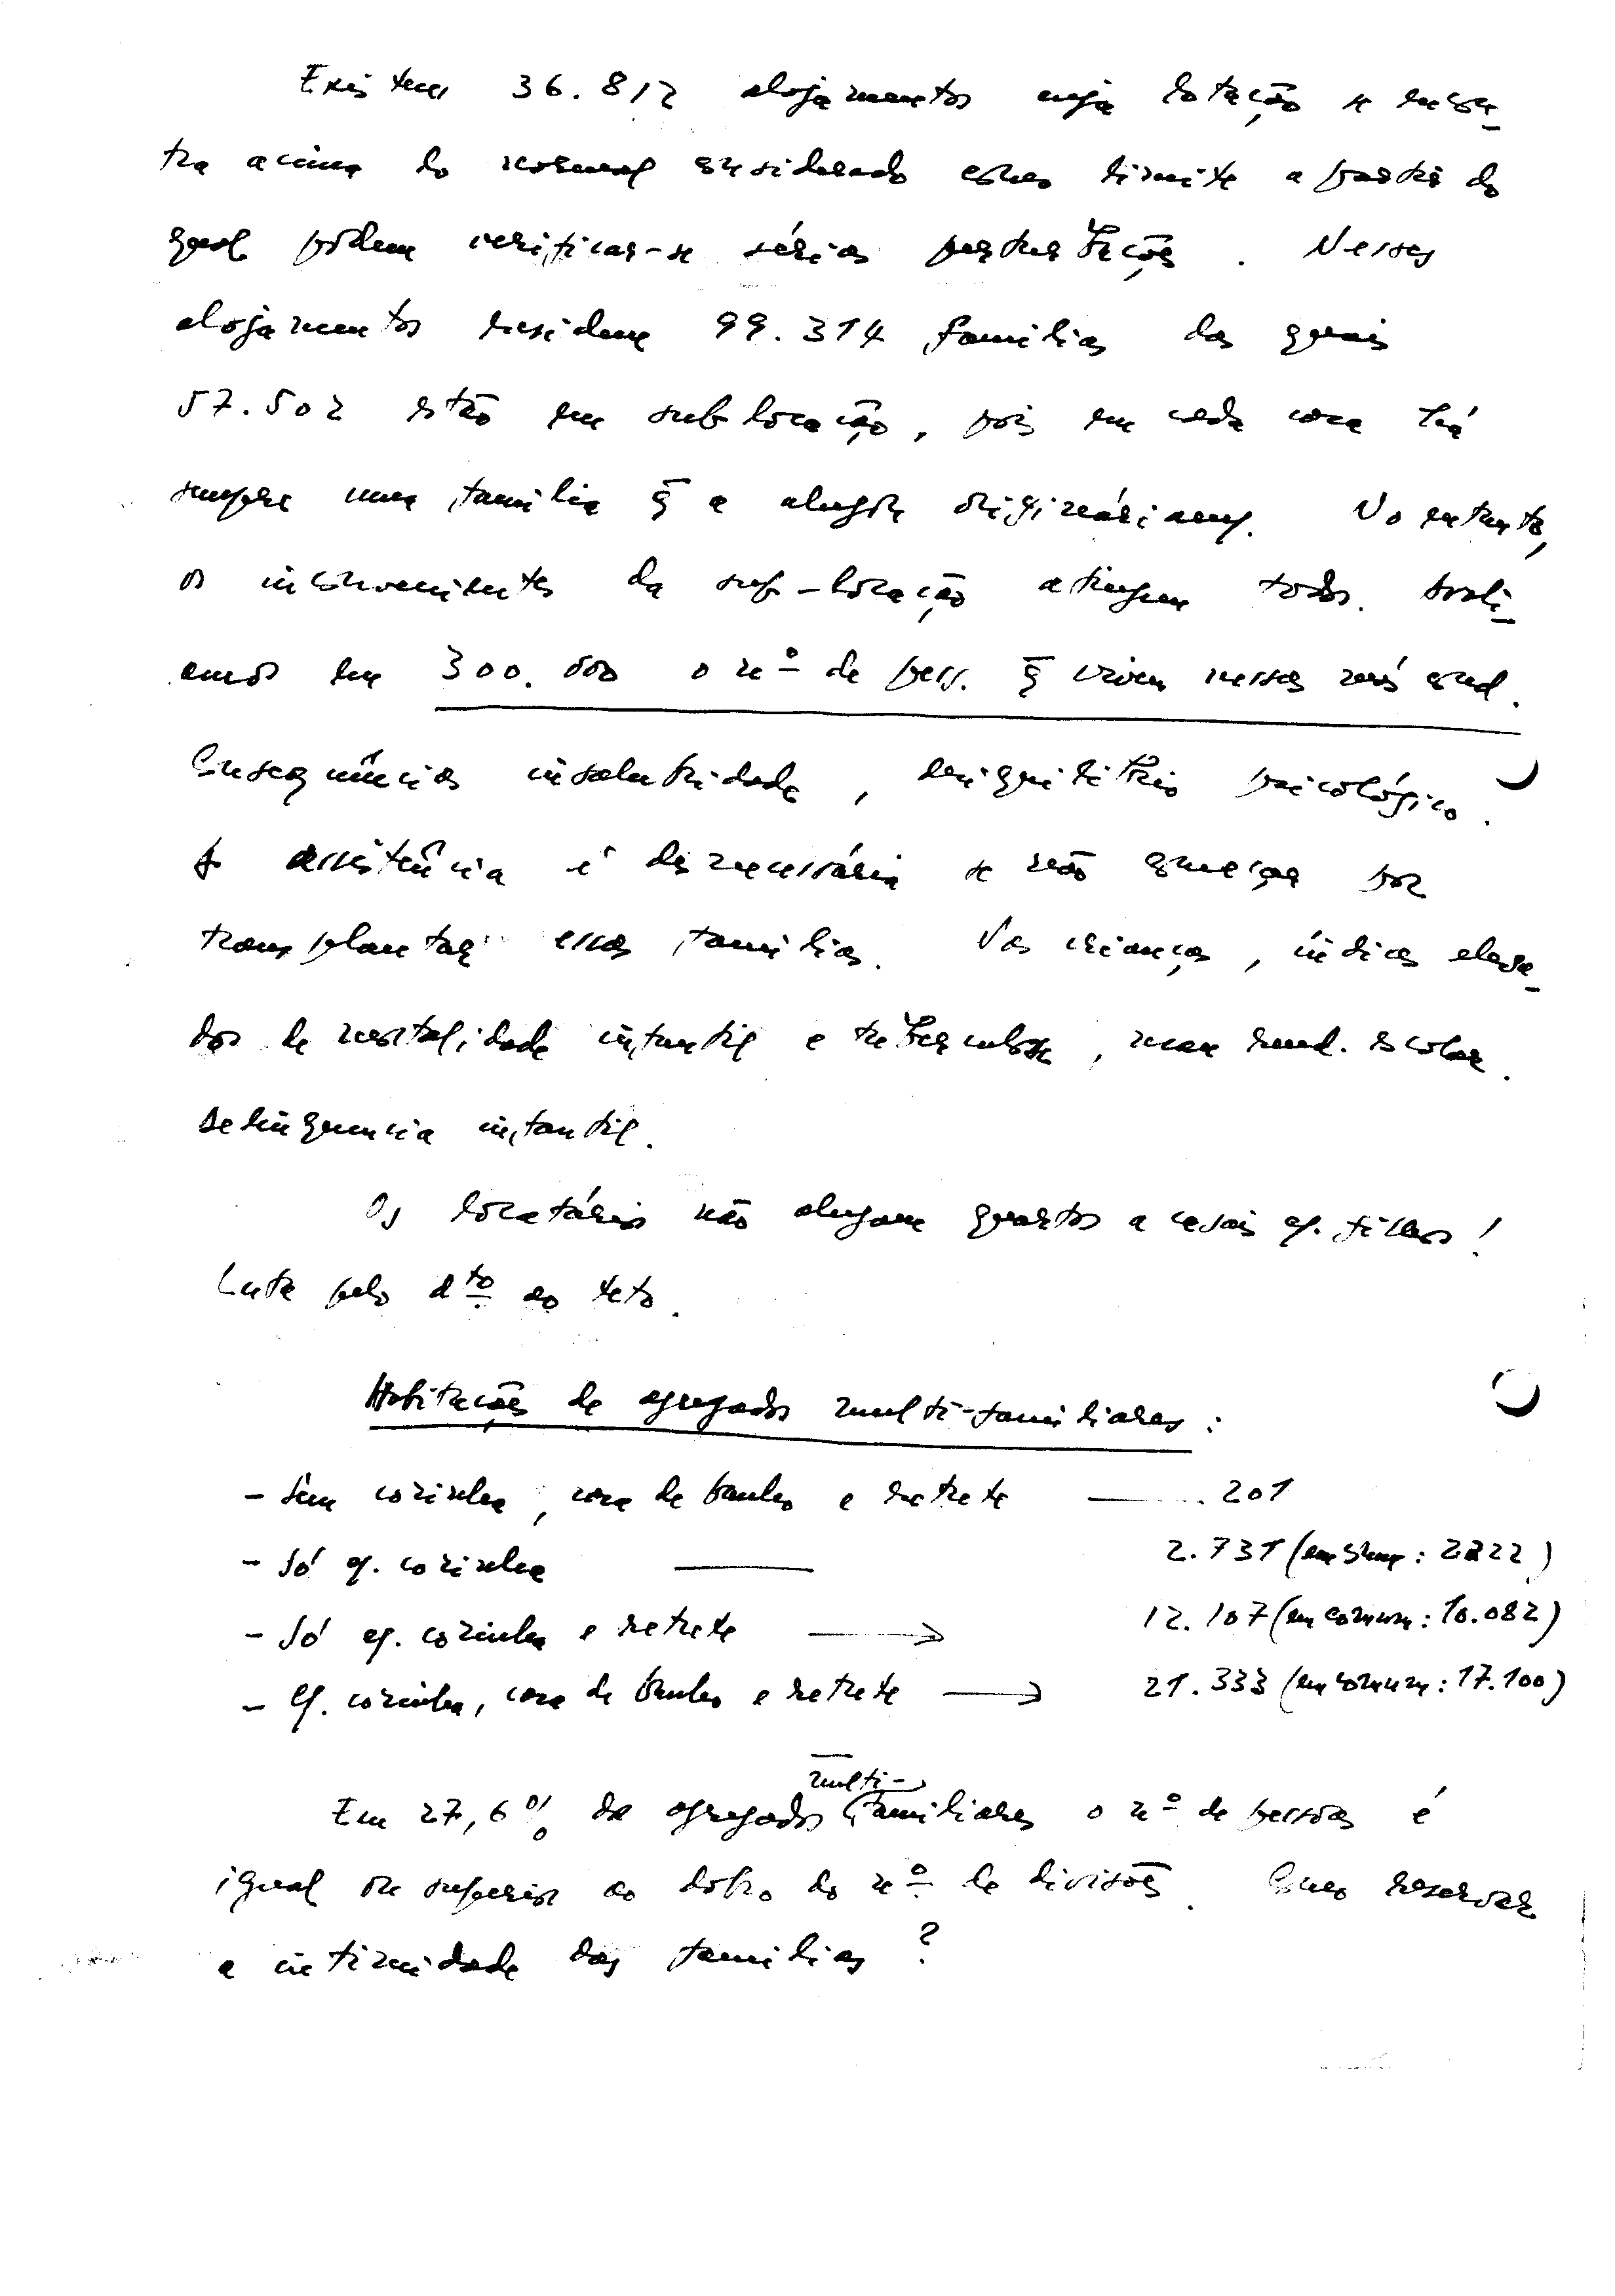 Existem 36.812 alojamentos cuja lotação se encon-
tra acima do normal considerado como limite a partir do
qual pódem verificar-se sérias perturbações. Nesses
alojamentos residem 99.314 familias das quais
57.502 estão em sublocação, pois em cada casa há
sempre uma familia q̄ a alugou originàriam. No entanto,
os inconvenientes da sub-locação atingem todos. Avali-
amos em 300.000 o nº de pess. q̄ vivem nessas más cond.
Consequências insalubridade, desiquilíbrio psicológico.
A assistência é desnecessária se não começar por
transplantar essas familias. Nas crianças, índices eleva-
dos de mortalidade infantil e tuberculose, mau rend. escolar.
Delinquencia infantil.
Os locatários não alugam quartos a casais c/. filhos!
Luta pelo dto ao teto.
Habitações de agregados multi-familiares:
- Sem cozinha, casa de banho e retrete — 201
- Só c/. cozinha — 2.731 (em comum: 2222)
- Só c/. cozinha e retrete → 12.107 (em comum: 10.082)
- C/. cozinha, casa de banho e retrete → 21.333 (em comum: 17.100)
Em 27,6% de agregados multi-familiares o nº de pessoas é
igual ou superior ao dobro do nº de divisões. Como reservar
a intimidade das familias?